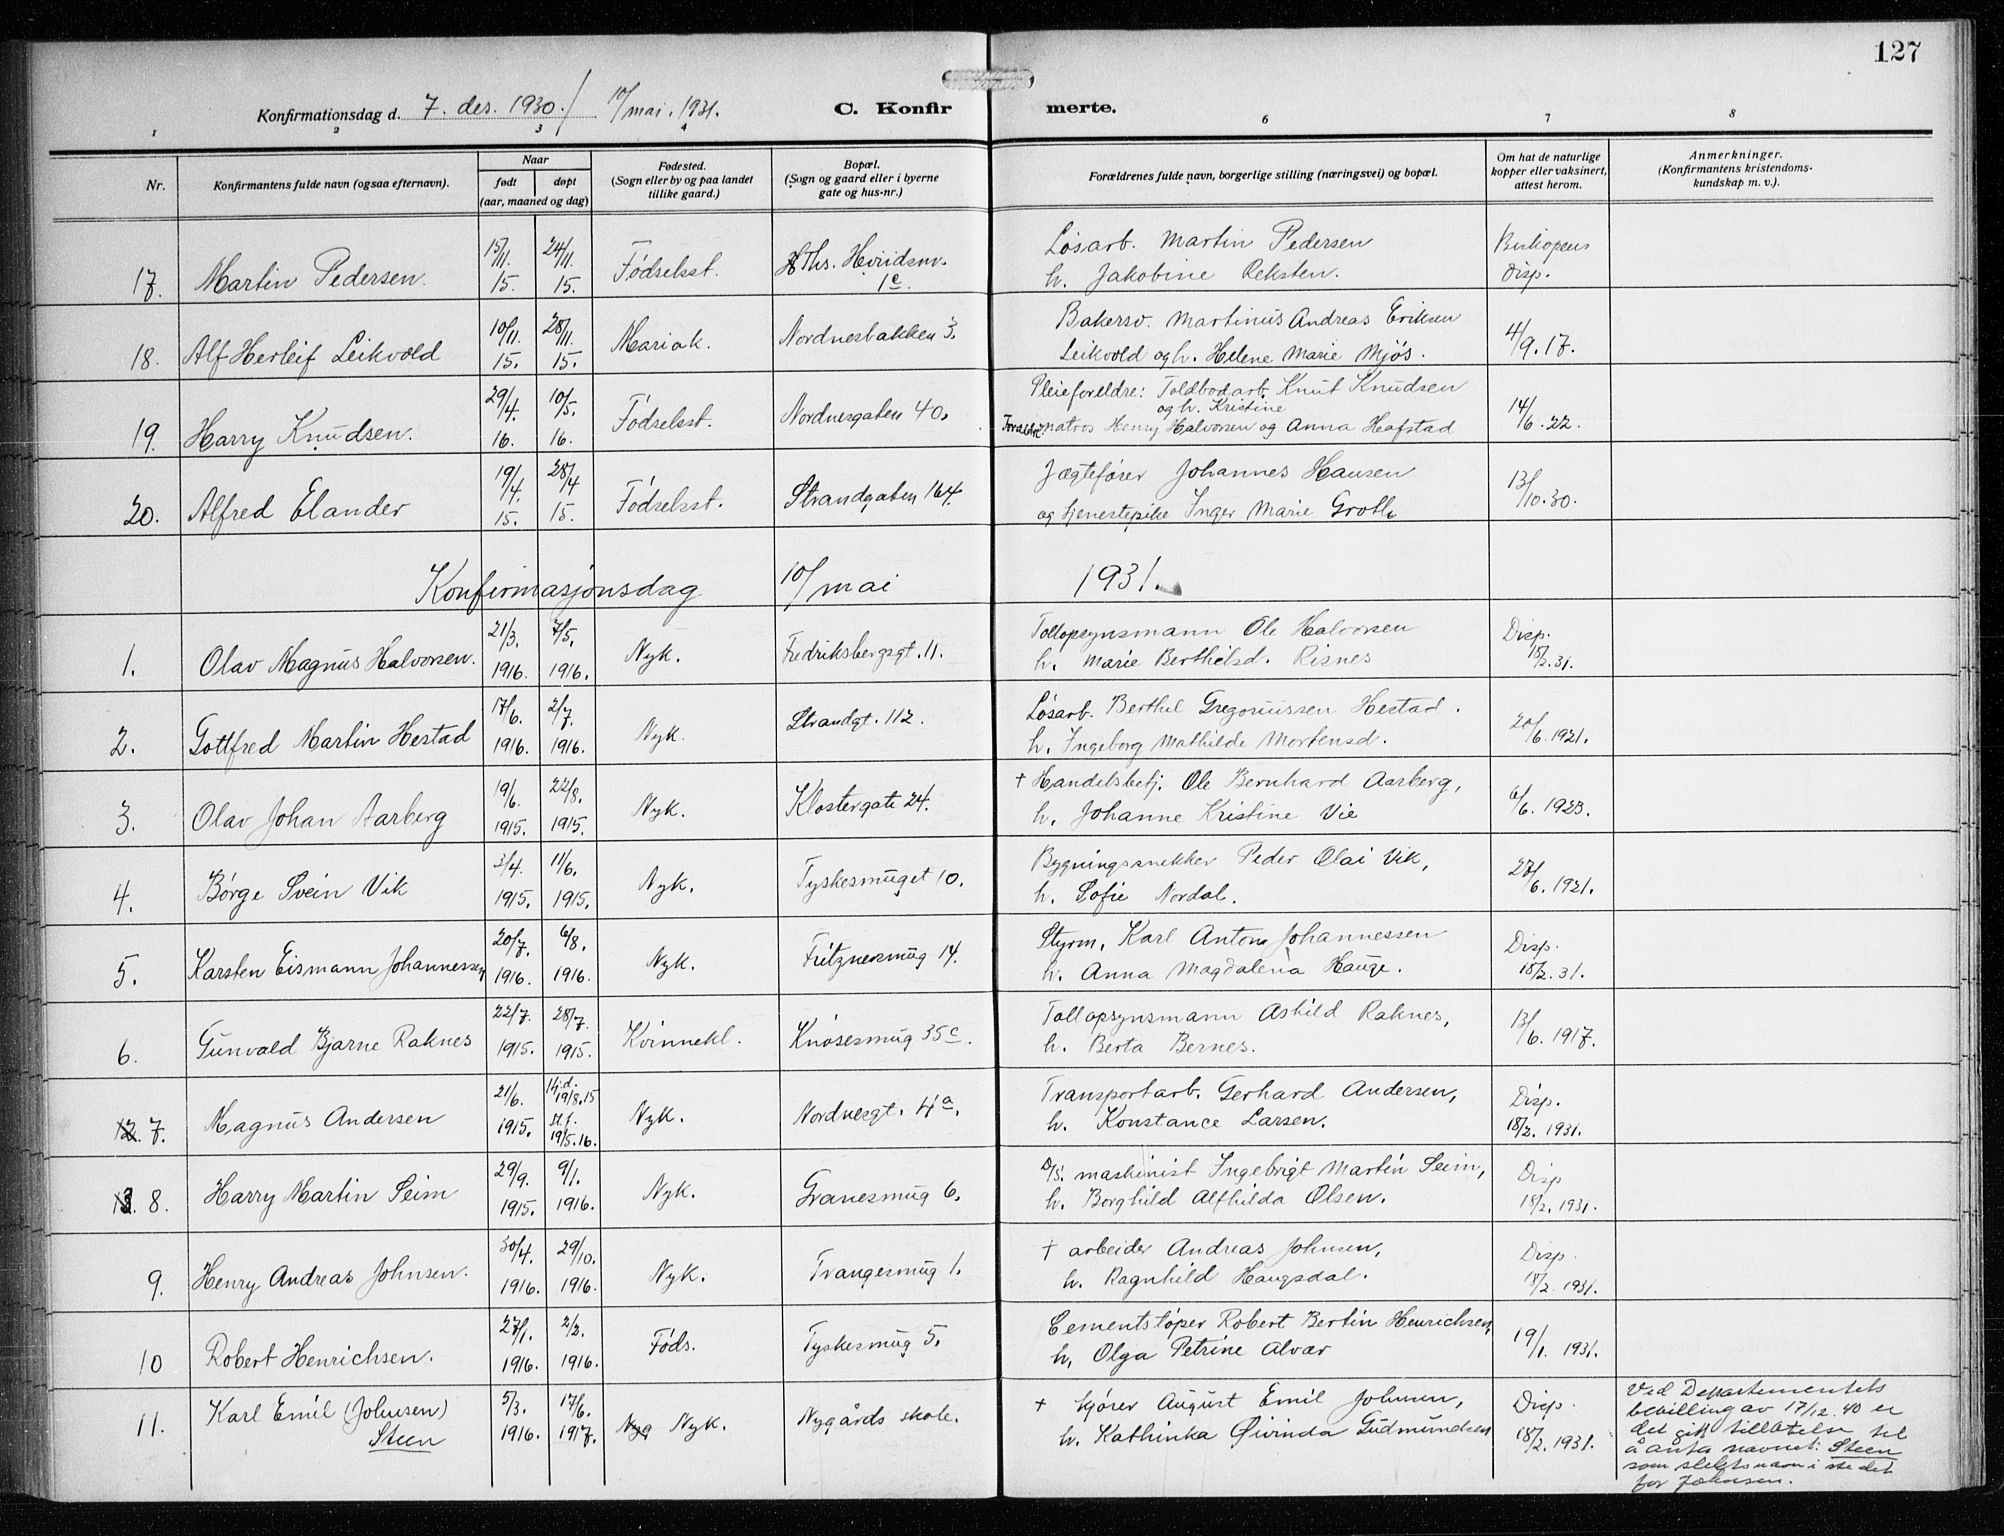 127
Konfirmationsdag d. 7. des. 1930. / 10/ mai. 1931.
C. Konfirmerte.
1 2 3 4 6 7 8
Nr. Konfirmantens fulde navn (ogsaa efternavn). Naar født døpt (aar, maaned og dag)
Fødested. (Sogn eller by og paa landet tillike gaard.)
Bopæl. (Sogn og gaard eller i byerne gate og hus-nr.)
Forældrenes fulde navn, borgerlige stilling (næringsvei) og bopæl.
Om hat de naturlige kopper eller vaksinert, attest herom.
Anmerkninger. (Konfirmantens kristendomskundskap m. v.).
17. Martin Pedersen. 15/11. 15. 24/11. 15. Fødselsst. Hvidsm. 1c. Løsarb. Martin Pedersen h. Jakobine Reksten. Biskopens Disp.
18. Alf Herleif Leikvold 10/11. 15. 28/11. 15. Mariak. Nordnesbakken 3. Bakersv. Martinus Andreas Eriksen Leikvold og h. Helene Marie Mjøs. 4/9. 17.
19. Harry Knudsen. 29/4. 16. 10/5. 16. Fødselsst. Nordnesgaten 40. Pleieforeldre: Toldbodarb. Knut Knudsen og h. Kristine
Foreldre: matros Henry Halvorsen og Anna Hafstad 14/6. 22.
20. Alfred Elander 19/4. 15. 28/4 15. Fødselsst. Strandgaten 164. Jægtefører Johannes Hansen og tjenestepike Inger Marie Groth 13/10. 30.
Konfirmasjonsdag 10/ mai 1931.
1. Olav Magnus Halvorsen. 21/3. 1916. 7/5. 1916. Nyk. Fredriksbergsgt. 11. Tollopsynsmann Ole Halvorsen h. Marie Berthelsd. Risnes Disp. 18/2. 31.
2. Gottfred Martin Hestad 17/6. 1916. 2/7. 1916. Nyk. Strandgt. 112. Løsarb. Berthel Gregoriussen Hestad. h. Ingeborg Mathilde Mortensd. 20/6. 1921.
3. Olav Johan Aarberg 19/6. 1915. 22/8. 1915. Nyk. Klostergate 24. † Handelsbetj. Ole Bernhard Aarberg, h. Johanne Kristine Vie 6/6. 1923.
4. Børge Svein Vik 3/4. 1915. 11/6. 1915. Nyk. Tyskesmuget 10. Bygningssnekker Peder Olai Vik, h. Sofie Nordal. 20/6. 1921.
5. Karsten Eismann Johannessen, 20/7. 1916. 6/8. 1916. Nyk. Fritznersmug 14. Styrm. Karl Anton Johannessen h. Anna Magdalena Hauge. Disp. 18/2. 31.
6. Gunvald Bjarne Raknes 22/7. 1915. 28/7. 1915. Kvinnekl. Knøsesmug 35c. Tollopsynsmann Askild Raknes, h. Berta Bernes. 13/6. 1917.
12. 7. Magnus Andersen 21/6. 1915. Hj.d. 19/8.15 St.f. 19/5.16. Nyk. Nordnesgt. 4a. Transportarb. Gerhard Andersen, h. Konstance Larsen. Disp. 18/2. 1931.
13. 8. Harry Martin Seim 29/9. 1915. 9/1. 1916. Nyk. Granesmug 6. D/S. maskinist Ingebrigt Martin Seim, h. Borghild Alfhilda Olsen. Disp 18/2. 1931.
9. Henry Andreas Johnsen. 30/4. 1916. 29/10. 1916. Nyk. Trangesmug 1. † arbeider Andreas Johnsen, h. Ragnhild Haugsdal. Disp. 18/2. 1931.
10 Robert Henrichsen. 27/1. 1916. 2/2. 1916. Føds. Tyskesmug 5. Cementstøper Robert Bertin Henrichsen, h. Olga Petrine Alvær 19/1. 1931.
11. Karl Emil (Johnsen) Steen 5/3. 1916. 17/6. 1917. Nyg Nyk. Nygårds skole. † kjører August Emil Johnsen, h. Kathinka Øivinda Gudmundsen Disp. 18/2. 1931.
Ved Departementets
bevilling av 17/12. 40 er
det gitt tillatelse til
å anta navnet: Steen
som slektsnavn i stedet
for Johnsen.